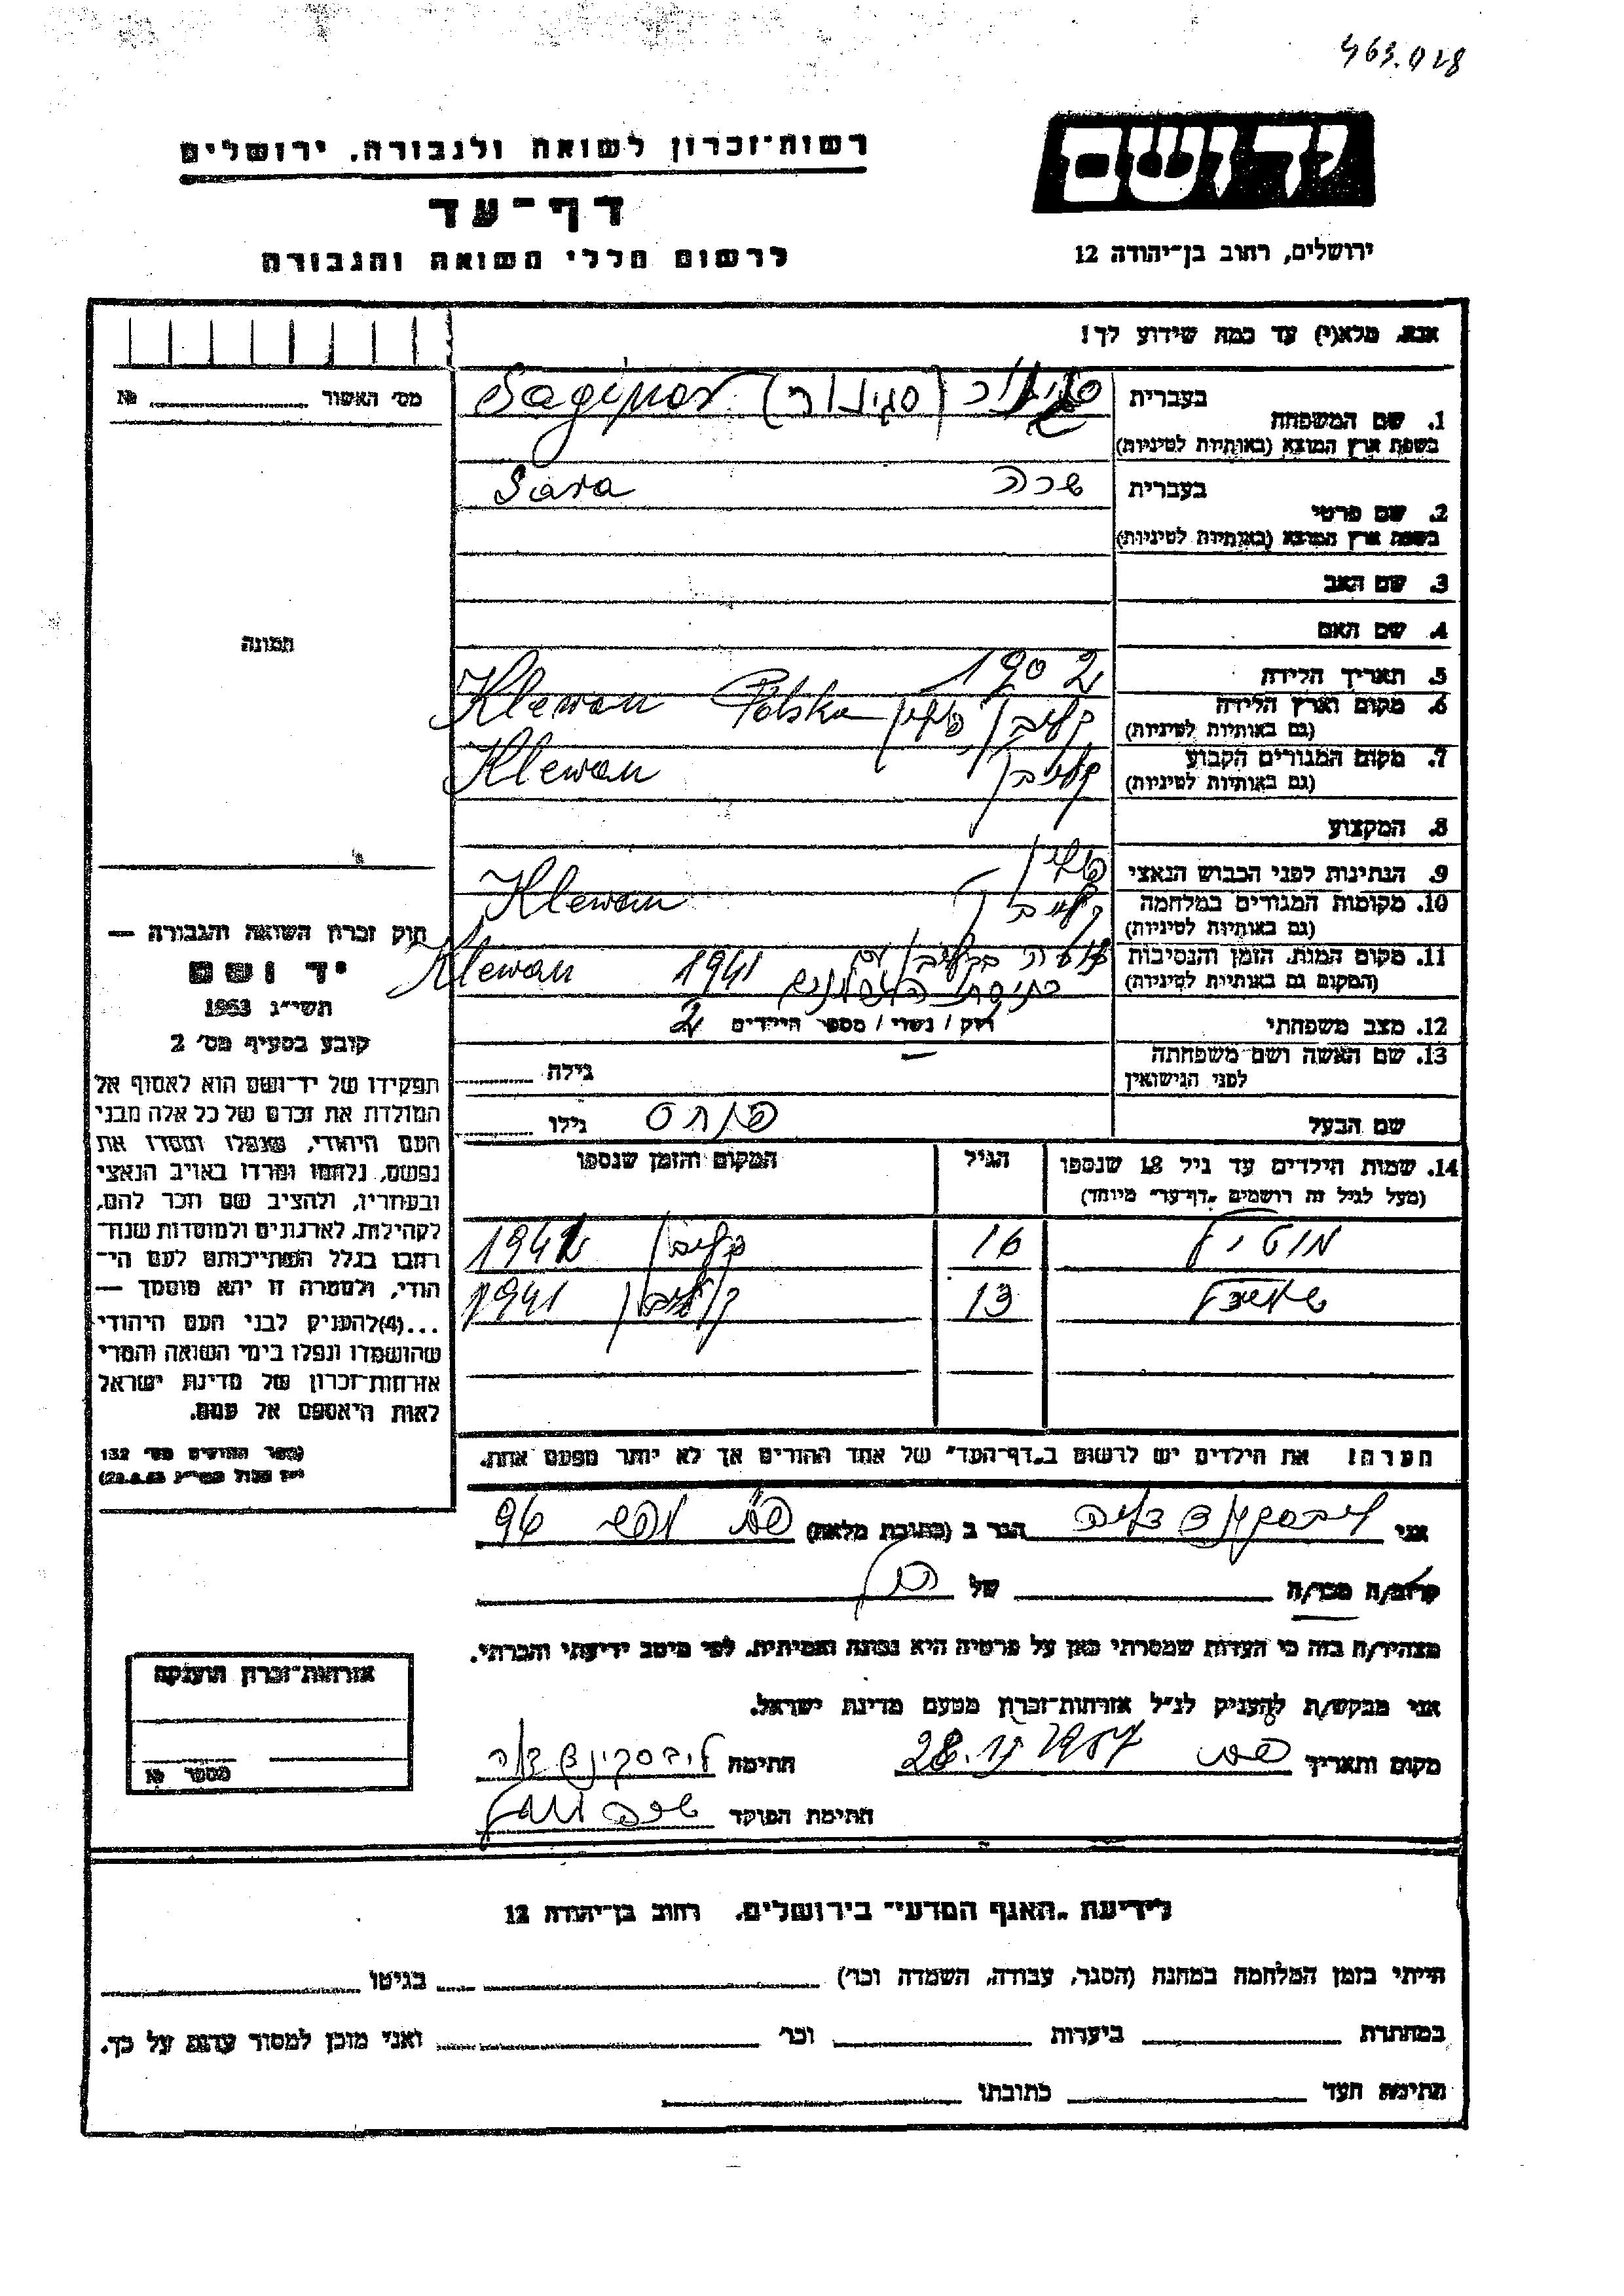 463.018
יד ושם
רשות־זכרון לשואה ולגבורה. ירושלים
דף־עד
לרשום חללי השואה והגבורה
ירושלים, רחוב בן־יהודה 12
אנא. מלא(י) עד כמה שידוע לך!
מס׳ האשור № 
1. שם המשפחה
בעברית (סגינור)
בשפת ארץ המוצא (באותיות לטיניות)
2. שם פרטי
בעברית שרה Sara
בשפת ארץ המוצא (באותיות לטיניות)
3. שם האב
4. שם האם
תמונה
5. תאריך הלידה 1902
6. מקום וארץ הלידה קליבן פולין Klewan Polska
(גם באותיות לטיניות)
7. מקום המגורים הקבוע קליבן Klewan
(גם באותיות לטיניות)
8. המקצוע
9. הנתינות לפני הכבוש הנאצי פולין
10. מקומות המגורים במלחמה קליבן Klewan
(גם באותיות לטיניות)
11. מקום המות. הזמן והנסיבות בקליבן עם 1941 Klewan
(המקום גם באותיות לטיניות) כניסת הגרמנים
12. מצב משפחתי רוק / נשוי / מספר הילדים 2
13. שם האשה ושם משפחתה
לפני הנישואין גילה
שם הבעל פנחס גילו
14. שמות הילדים עד גיל 18 שנספו הגיל המקום והזמן שנספו
(מעל לגיל זה רושמים „דף־עד״ מיוחד)
מוטיל 16 קליבן 1941
13 קליבן 1941
הערה! את הילדים יש לרשום ב„דף־העד״ של אחד ההורים אך לא יותר מפעם אחת.
חוק זכרון השואה והגבורה —
יד ושם
תשי״ג 1953
קובע בסעיף מס׳ 2
תפקידו של יד־ושם הוא לאסוף אל
המולדת את זכרם של כל אלה מבני
העם היהודי, שנפלו ומסרו את
נפשם, נלחמו ומרדו באויב הנאצי
ובעוזריו, ולהציב שם וזכר להם,
לקהילות, לארגונים ולמוסדות שנח־
רבו בגלל השתייכותם לעם הי־
הודי, ולמטרה זו יהא מוסמך —
...(4)להעניק לבני העם היהודי
שהושמדו ונפלו בימי השואה והמרי
אזרחות־זכרון של מדינת ישראל
לאות היאספם אל עמם.
(ספר החוקים מס׳ 132
אני הגר ב (כתובת מלאה) 96
קרוב/ה מכר/ה של
מצהיר/ה בזה כי העדות שמסרתי כאן על פרטיה היא נכונה ואמיתית. לפי מיטב ידיעתי והכרתי.
אני מבקש/ת להעניק לנ״ל אזרחות־זכרון מטעם מדינת ישראל.
מקום ותאריך חתימה
חתימת הפוקד
אזרחות־זכרון הוענקה
מספר №
לידיעת „האגף המדעי״ בירושלים. רחוב בן־יהודה 12
הייתי בזמן המלחמה במחנה (הסגר, עבודה, השמדה וכו׳) בגיטו
במחתרת ביערות וכו׳ ואני מוכן למסור עדות על כך.
חתימת העד כתובתו